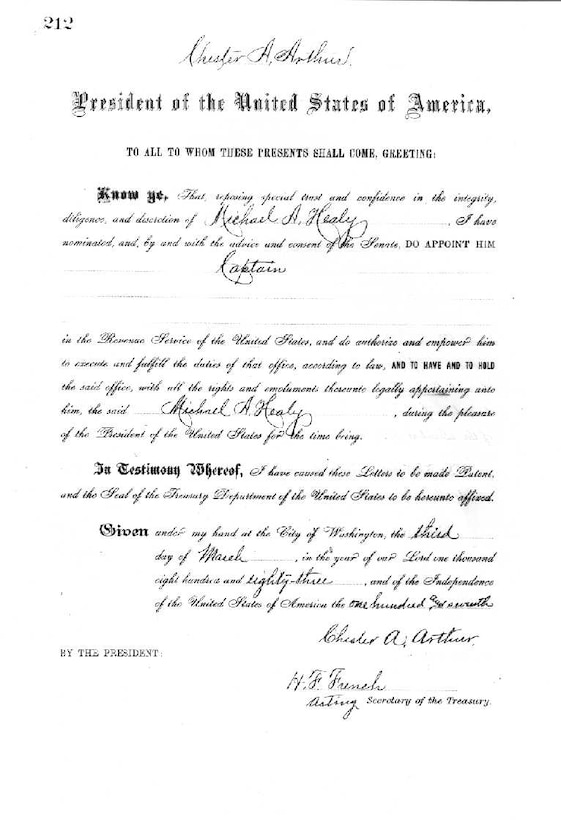 212
Chester A. Arthur.
President of the United States of America,
TO ALL TO WHOM THESE PRESENTS SHALL COME, GREETING:
Know ye, That, reposing special trust and confidence in the integrity,
diligence, and discretion of Michael A. Healy, I have
nominated, and, by and with the advice and consent of the Senate, DO APPOINT HIM
Captain
in the Revenue Service of the United States, and do authorize and empower him
to execute and fulfill the duties of that office, according to law, AND TO HAVE AND TO HOLD
the said office, with all the rights and emoluments thereunto legally appertaining unto
him, the said Michael A. Healy, during the pleasure
of the President of the United States for the time being.
In Testimony Whereof, I have caused these Letters to be made Patent,
and the Seal of the Treasury Department of the United States to be hereunto affixed.
Given under my hand at the City of Washington, the third
day of March, in the year of our Lord one thousand
eight hundred and eighty-three, and of the Independence
of the United States of America the one hundred and seventh
Chester A. Arthur.
BY THE PRESIDENT:
H. F. French
Acting Secretary of the Treasury.